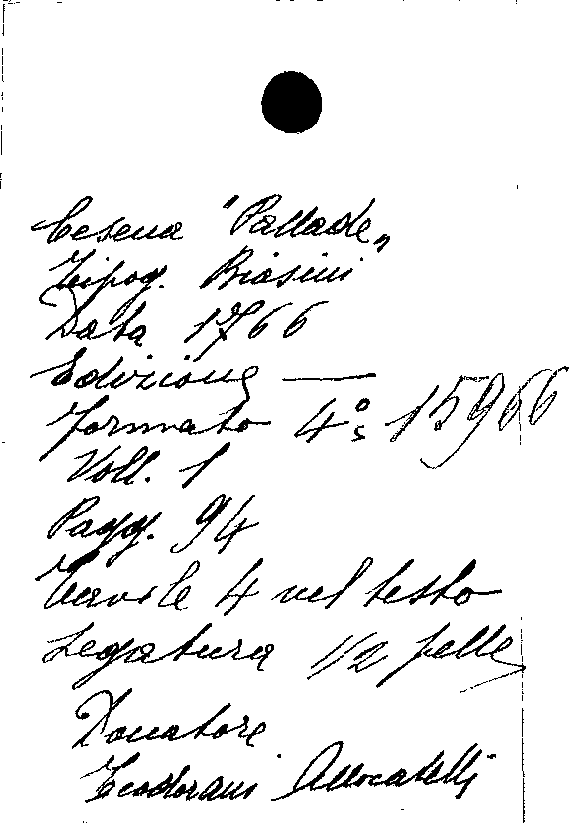 Cesena "Pallade„
Tipog. Biasini
Data 1766
Edizione —
Formato 4º 15966
Voll. 1
Pagg. 94
Tavole 4 nel testo
Legatura 1/2 pelle
Donatore
Teodorani Allocatelli